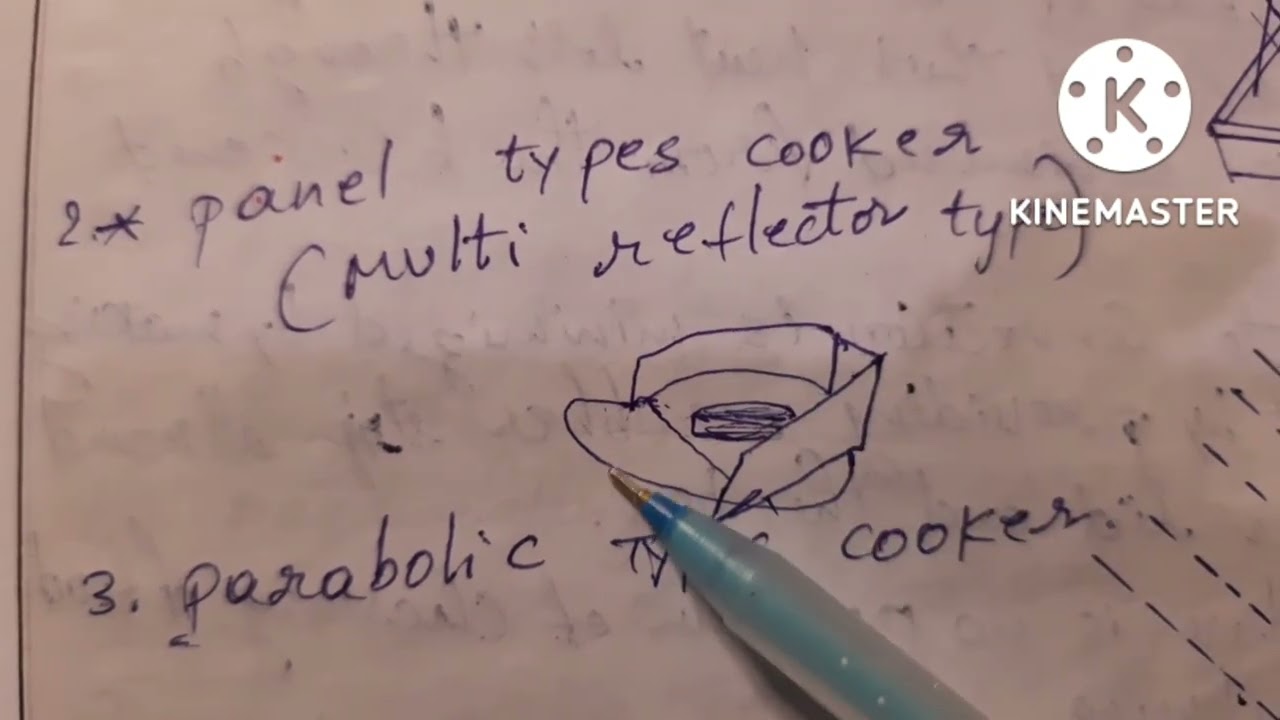 2.* panel types cooker
(Multi reflector type)
3. parabolic type cooker.
K
KINEMASTER